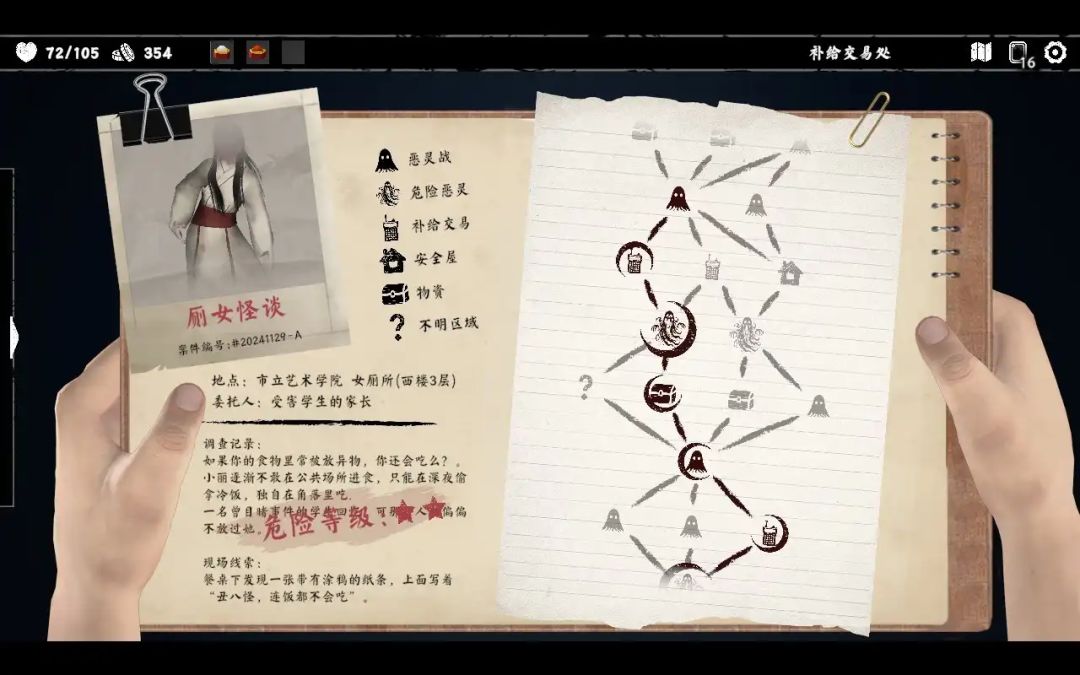 72/105 354 补给交易处 16
恶灵战
危险恶灵
补给交易
安全屋
物资
? 不明区域
厕女怪谈
案件编号:#20241129-A
地点：市立艺术学院 女厕所(西楼3层)
委托人：受害学生的家长
调查记录：
如果你的食物里常被放异物，你还会吃么？。
小丽逐渐不敢在公共场所进食，只能在深夜偷
拿冷饭，独自在角落里吃.
一名曾目睹事件的学生回 可 人 偏偏
不放过她。
危险等级：★★
现场线索：
餐桌下发现一张带有涂鸦的纸条，上面写着
“丑八怪，连饭都不会吃”。
?